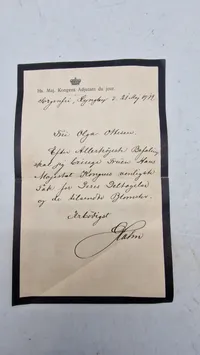 Hs. Maj. Kongens Adjutant du jour.
Sorgenfri, Lyngby d. 21 Maj 1912.
Fru Olga
Efter Allerhøjeste Befaling
skal jeg bringe Fruen Hans
Majestæt Kongens venligste
Tak for Deres Deltagelse
og de tilsendte Blomster.
Ærbødigst